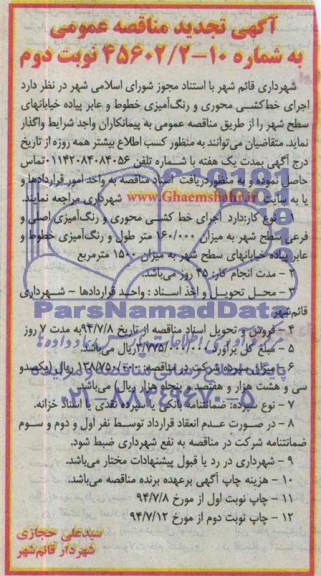 آگهی تجدید مناقصه عمومی
به شماره ۱۰-۴۵۶۰۲/۲ نوبت دوم
شهرداری قائم شهر با استناد مجوز شورای اسلامی شهر در نظر دارد
اجرای خط‌کشی محوری و رنگ‌آمیزی خطوط و عابر پیاده خیابانهای
سطح شهر را از طریق مناقصه عمومی به پیمانکاران واجد شرایط واگذار
نماید. متقاضیان می‌توانند به منظور کسب اطلاع بیشتر همه روزه از تاریخ
درج آگهی بمدت یک هفته با شماره تلفن تماس
حاصل نموده و به منظور دریافت اسناد مناقصه به واحد امور قراردادها و
یا به سایت www.Ghaemshahr.ir شهرداری مراجعه نمایند.
۱ - نوع کار: اجرای خط کشی محوری و رنگ‌آمیزی اصلی و
فرعی سطح شهر به میزان ۱۶۰/۰۰۰ متر طول و رنگ‌آمیزی خطوط و
عابر پیاده خیابانهای سطح شهر به میزان ۱۵۰۰ مترمربع
۲ - مدت انجام کار: ۴۵ روز می‌باشد.
۳ - محل تحویل و اخذ اسناد: واحد قراردادها - شهرداری
قائم‌شهر
۴ - فروش و تحویل اسناد مناقصه از تاریخ ۹۴/۷/۸ به مدت ۷ روز
۵ - مبلغ کل برآورد: ریال می‌باشد.
۶ - میزان سپرده شرکت در مناقصه: ریال (یکصدو
سی و هشت هزار و هفتصد و پنجاه هزار ریال) می‌باشد.
۷ - نوع سپرده: ضمانتنامه بانکی یا سپرده نقدی یا اسناد خزانه.
۸ - در صورت عدم انعقاد قرارداد توسط نفر اول و دوم و سوم
ضمانتنامه شرکت در مناقصه به نفع شهرداری ضبط شود.
۹ - شهرداری در رد یا قبول پیشنهادات مختار می‌باشد.
۱۰ - هزینه چاپ آگهی برعهده برنده مناقصه می‌باشد.
۱۱ - چاپ نوبت اول از مورخ ۹۴/۷/۸
۱۲ - چاپ نوبت دوم از مورخ ۹۴/۷/۱۲
سیدعلی حجازی
شهردار قائم‌شهر
ParsNamadData
۰۲۱-۸۸۳۴۹۶۷۰-۵